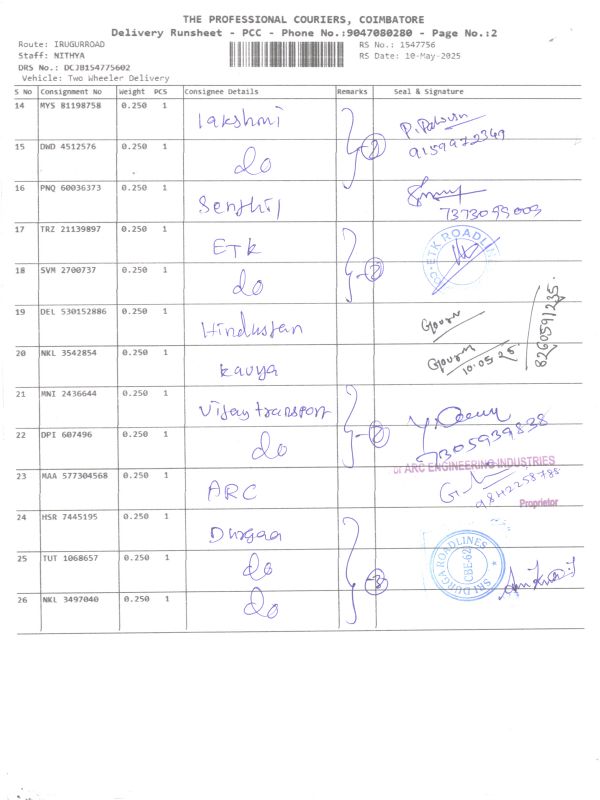 THE PROFESSIONAL COURIERS, COIMBATORE
Delivery Runsheet - PCC - Phone No.:9047080280 - Page No.:2
Route: IRUGURROAD RS No.: 1547756
Staff: NITHYA RS Date: 10-May-2025
DRS No.: DCJB154775602
Vehicle: Two Wheeler Delivery
S No Consignment No Weight PCS Consignee Details Remarks Seal & Signature
14 MYS 81198758 0.250 1 lakshmi
9159972349
15 DWD 4512576 0.250 1 do 2
16 PNQ 60036373 0.250 1 Senthil
7373099009
17 TRZ 21139897 0.250 1 ETK ETK ROADLINES
18 SVM 2700737 0.250 1 do 2
19 DEL 530152886 0.250 1 Hindustan
8260591235
20 NKL 3542854 0.250 1 Kavya
10.05.25
21 MNI 2436644 0.250 1 Vijay transport
22 DPI 607496 0.250 1 do 2
7305939838
ARC ENGINEERING INDUSTRIES
23 MAA 577304568 0.250 1 ARC
9842258788
Proprietor
24 HSR 7445195 0.250 1 Durgaa
SRI DURGA ROADLINES
CBE-62
25 TUT 1068657 0.250 1 do 3
26 NKL 3497040 0.250 1 do